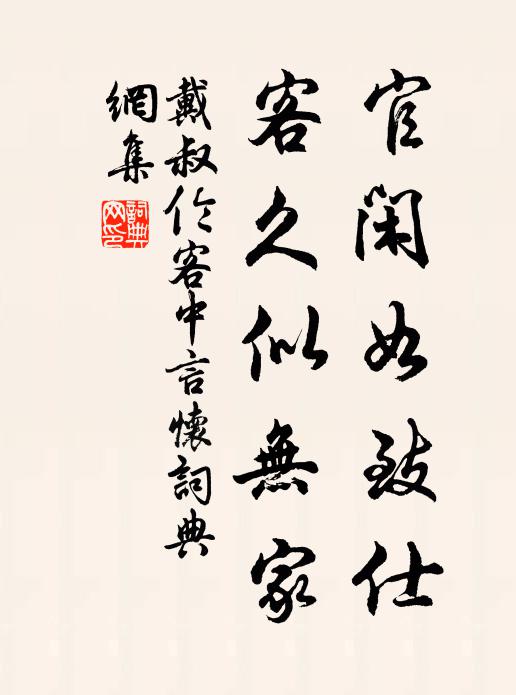 官閑如致仕
客久似無家
戴叔伦客中言懷詞典
網集
詞典網印